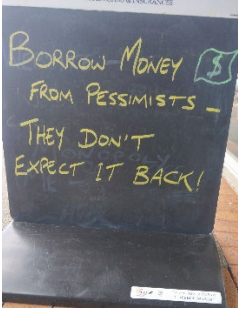 BORROW MONEY $
FROM PESSIMISTS -
THEY DON'T
EXPECT IT BACK!